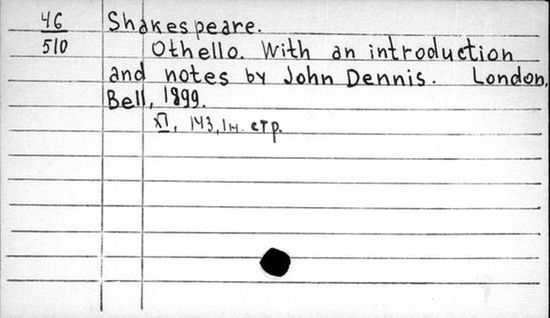 46
510
Shakespeare.
Othello. With an introduction
and notes by John Dennis. London,
Bell, 1899.
XI, 143, 1 н. стр.